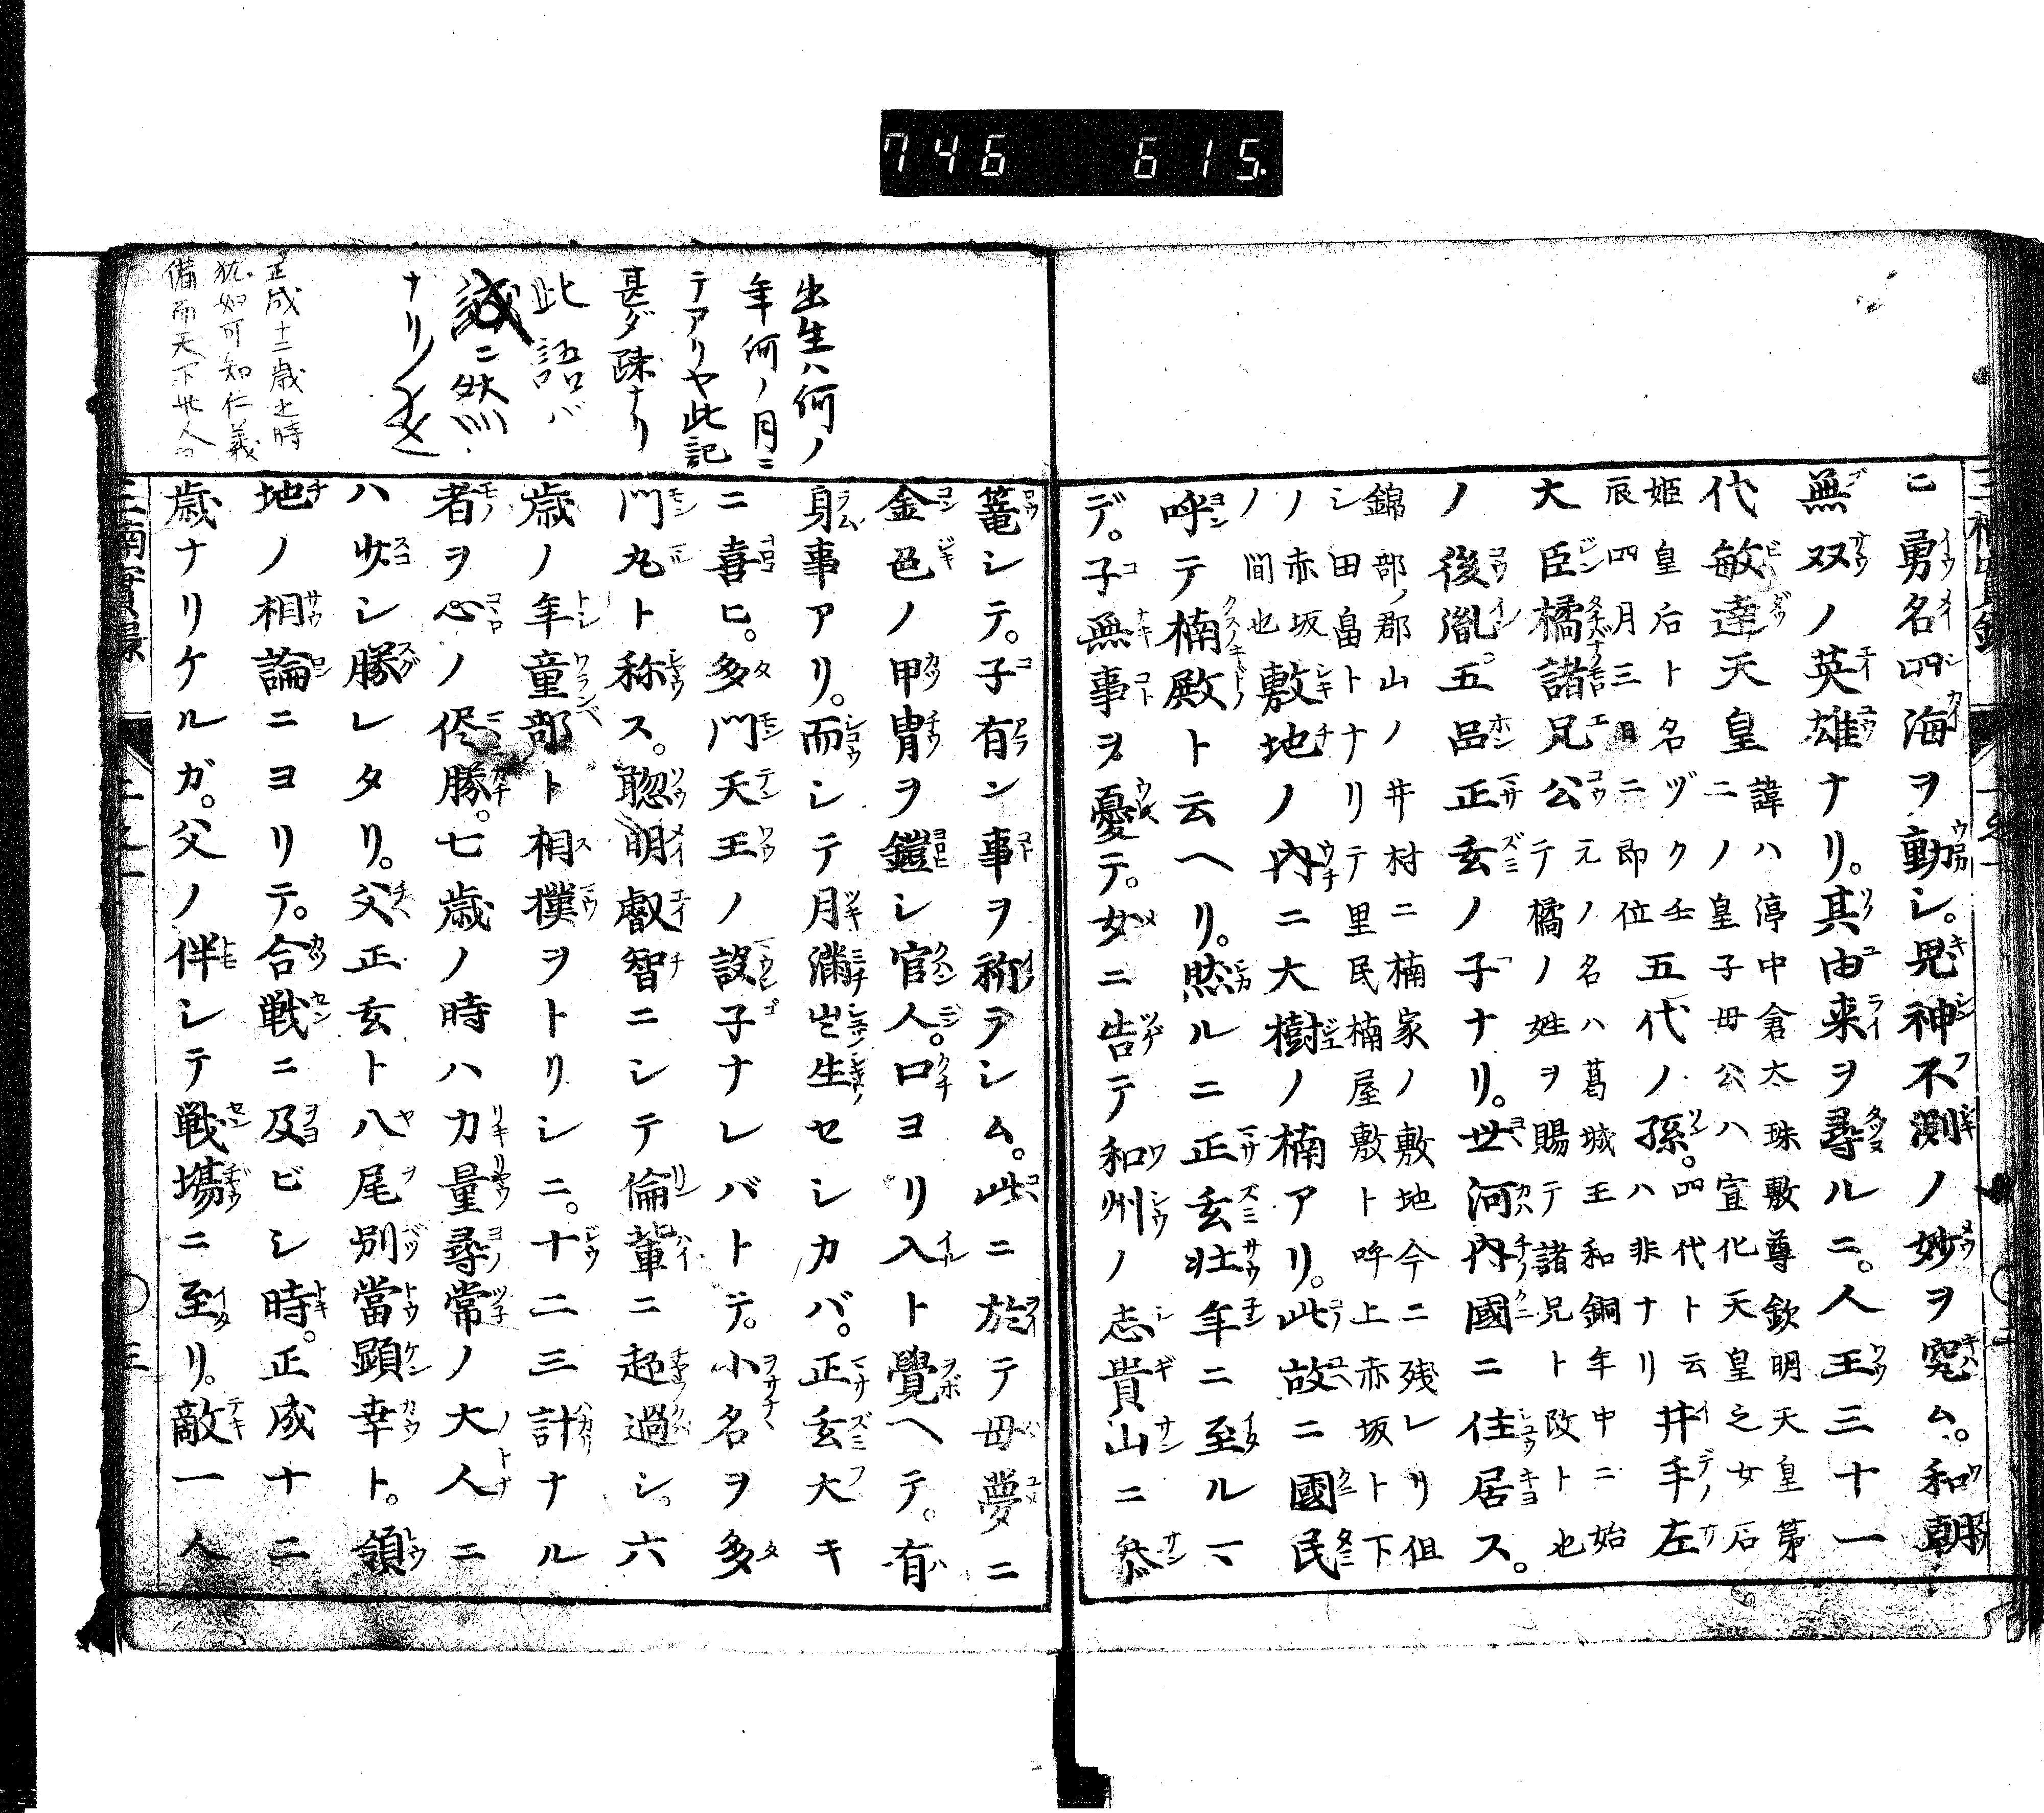 746 615.
ニ勇名四海ヲ動シ。鬼神不測ノ妙ヲ究ム。和朝
無双ノ英雄ナリ。其由来ヲ尋ルニ。人王三十一
代敏達天皇
諱ハ渟中倉太珠敷尊欽明天皇第
二ノ皇子母公ハ宣化天皇之女石
姫皇后ト名ヅク壬
辰四月三日ニ即位
五代ノ孫。
四代ト云
ハ非ナリ
井手左
大臣橘諸兄公
元ノ名ハ葛城王和銅年中ニ始
テ橘ノ姓ヲ賜テ諸兄ト改ト也
ノ後胤。五品正玄ノ子ナリ。世河内國ニ住居ス。
錦部ノ郡山ノ井村ニ楠家ノ敷地今ニ残レリ但
シ田畠トナリテ里民楠屋敷ト呼上赤坂ト下
ノ赤坂
ノ間也
敷地ノ内ニ大樹ノ楠アリ。此故ニ國民
呼テ楠殿ト云ヘリ。然ルニ正玄壮年ニ至ルマ
デ。子無事ヲ憂テ。女ニ告テ和州ノ志貴山ニ参
篭シテ。子有ン事ヲ祈ラシム。此ニ於テ母夢ニ
金色ノ甲冑ヲ鎧シ官人。口ヨリ入ト覺ヘテ。有
身事アリ。而シテ月満出生セシカバ。正玄大キ
ニ喜ヒ。多門天王ノ設子ナレバトテ。小名ヲ多
門丸ト称ス。聡明叡智ニシテ倫輩ニ超過シ。六
歳ノ年童部ト相撲ヲトリシニ。十二三計ナル
者ヲ心ノ侭勝。七歳ノ時ハ力量尋常ノ大人ニ
ハ少シ勝レタリ。父正玄ト八尾別當顕幸ト。領
地ノ相論ニヨリテ。合戦ニ及ビシ時。正成十二
歳ナリケルガ。父ノ伴シテ戦場ニ至リ。敵一人
出生ハ何ノ
年何ノ月ニ
テアリヤ此記
甚ダ疎ナリ
此語バ
誠ニ然
ナリ
正成十二歳之時
猶如可知仁義
備而天下此人